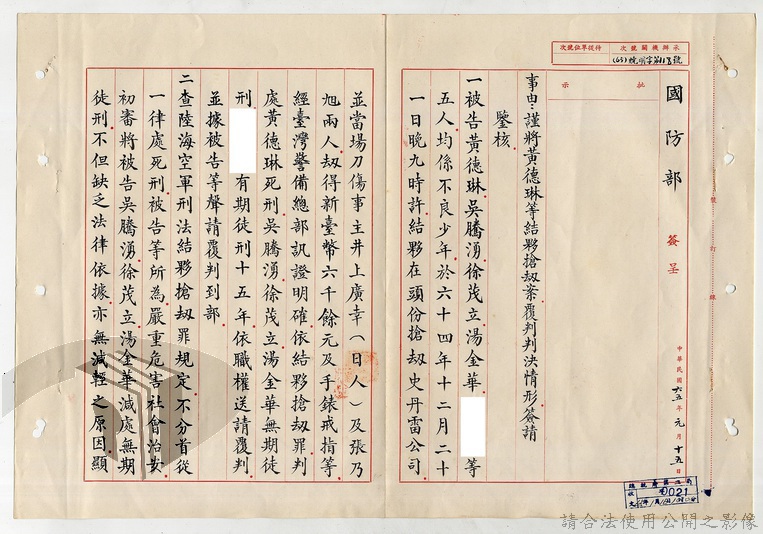 承辦機關號次
待從單位號次
(65)悅明字第118號
批
示
國防部
簽呈
中華民國六五年元月十五日
事由：謹將黃德琳等結夥搶劫案覆判判決情形簽請
鑒核
一被告黃德琳吳騰湧徐茂立湯金華等
五人均係不良少年於六十四年十二月二十
一日晚九時許結夥在頭份搶劫史丹雷公司
並當場刀傷事主井上廣幸（日人）及張乃
旭兩人劫得新臺幣六千餘元及手錶戒指等
經臺灣警備總部訊證明確依結夥搶劫罪判
處黃德琳死刑吳騰湧徐茂立湯金華無期徒
刑有期徒刑十五年依職權送請覆判
並據被告等聲請覆判到部
二查陸海空軍刑法結夥搶劫罪規定不分首從
一律處死刑被告等所為嚴重危害社會治安
初審將被告吳騰湧徐茂立湯金華減處無期
徒刑不但缺乏法律依據亦無減輕之原因顯
裝訂線
021
請合法使用公開之影像